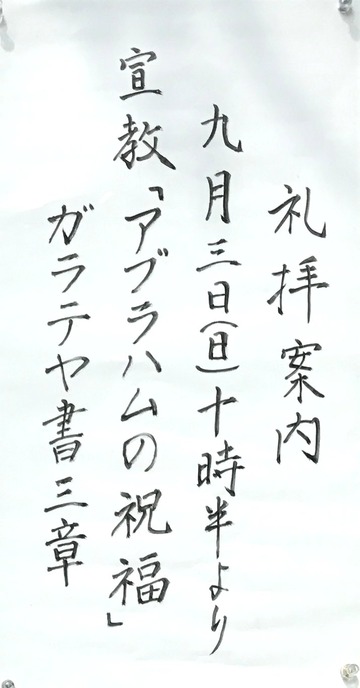 礼拝案内
九月三日(日)十時半より
宣教「アブラハムの祝福」
ガラテヤ書三章